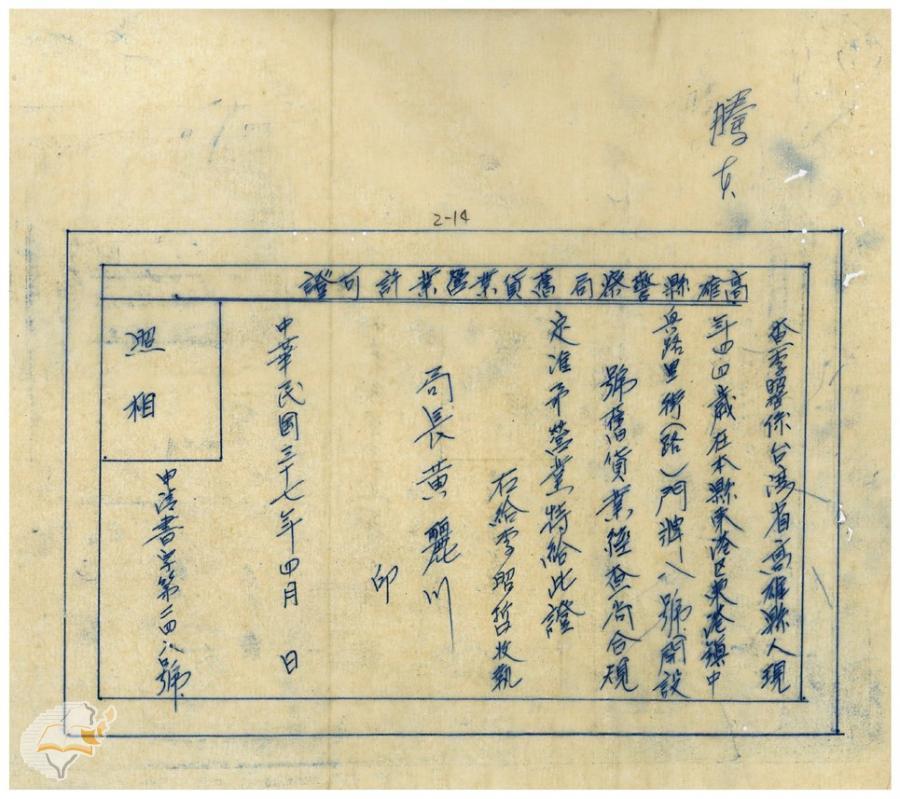 謄本
2-14
高雄縣警察局舊貨業營業許可證
查李 係台灣省高雄縣人現
年四四歲在本縣東港區東港鎮中
興路里街(路)門牌 號開設
號舊貨業經查尚合規
定准予營業特給此證
右給李昭哲收執
局長黃麗川
印
中華民國三十七年四月 日
照相
申請書字第二四八號